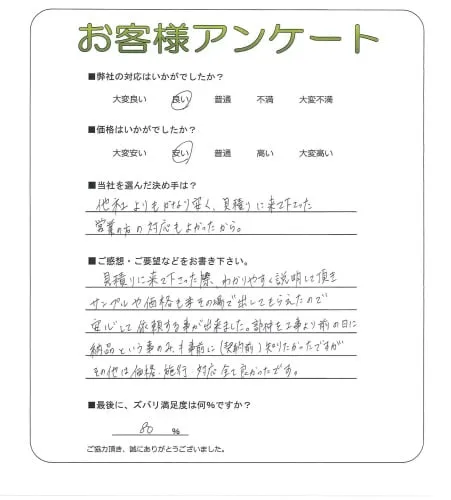 お客様アンケート
■弊社の対応はいかがでしたか？
大変良い 良い 普通 不満 大変不満
■価格はいかがでしたか？
大変安い 安い 普通 高い 大変高い
■当社を選んだ決め手は？
他社よりもかなり安く、見積りに来て下さった
営業の方の対応もよかったから。
■ご感想・ご要望などをお書き下さい。
見積りに来て下さった際、わかりやすく説明して頂き
サンプルや価格もその場で出してもらえたので
安心して依頼する事が出来ました。部材を工事より前の日に
納品という事のみ、事前に(契約前)知りたかったですが
その他は価格・施行・対応全て良かったです。
■最後に、ズバリ満足度は何%ですか？
80 %
ご協力頂き、誠にありがとうございました。